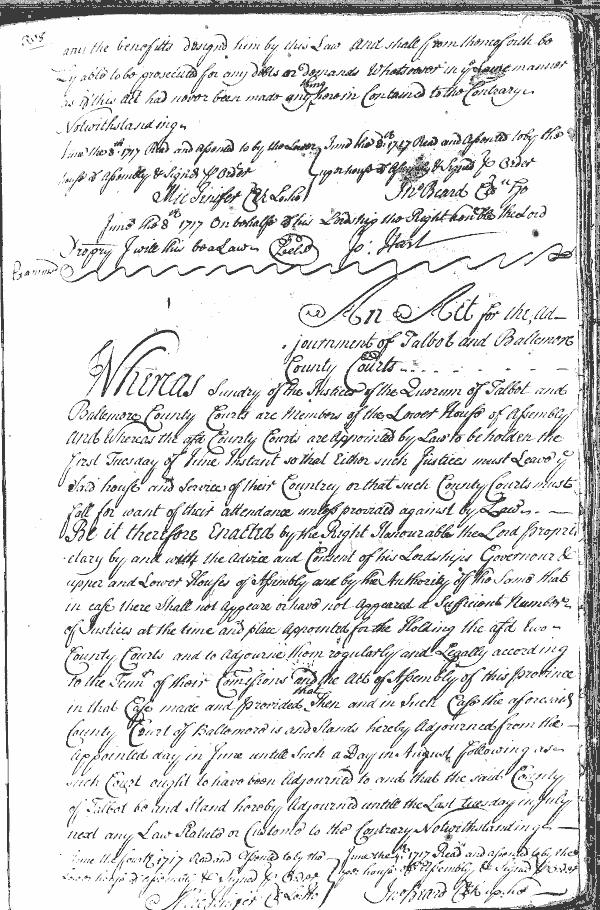 308
any the benefitts designd him by this Law And shall from thenceforth be
Lyable to be prosecuted for any debts or demands Whatsoever in ye same manner
as if this Act had never been made any thing herein Contained to the Contrary
Notwithstanding
June the 8th 1717 Read and Assented to by the Lower
house of Assembly & Signd p Order
Cl Lo ho
June the 8th 1717 Read and Assented to by the
upper house of Assembly & Signd p Order
Jno Beard Cl up ho
June the 8th 1717 On behalfe of his Lordship the Right honoble the Lord
Propry I will this be a Law
Jo: Hart
Examined
An Act for the Ad-
journment of Talbot and Baltemore
County Courts
Whereas Sundry of the Justices of the Quorum of Talbot and
Baltemore County Courts are Members of the Lower House of Assembly
And Whereas the afd County Courts are Appointed by Law to be holden the
first Tuesday of June Instant so that Either such Justices must Leave ye
Said house and Service of their Country or that such County Courts must
fall for want of their attendance unless provided against by Law
Be it therefore Enacted by the Right Honourable the Lord Propri
etary by and with the Advice and Consent of his Lordships Governour &
upper and Lower Houses of Assembly and by the Authority of the Same that
in case there Shall not Appeare or have not Appeared a Sufficient Number
of Justices at the time and place Appointed for the Holding the afd two
County Courts and to Adjourne them regularly and Legally according
to the Tennr of their Comissions and the Acts of Assembly of this Province
in that Case made and provided that Then and in Such Case the aforesaid
County Court of Baltemore is and Stands hereby Adjourned from the
Appointed day in June untill Such a Day in August following as
such Court ought to have been Adjourned to and that the said County
of Talbot be and Stand hereby Adjourned untill the Last tuesday in July
next any Law Statute or Custome to the Contrary Notwithstanding
June the 1717 Read and Assented to by the
Lower house of Assembly & Signd p Order
Cl Lo ho
June the 1717 Read and assented to by the
upper house of Assembly & Signd p Order
Jno Beard Cl up ho